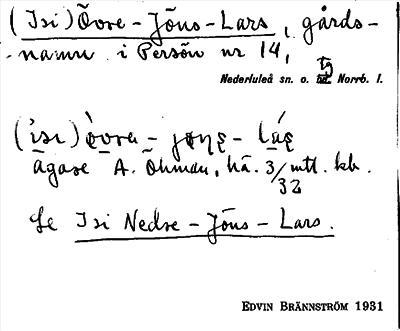 (Isi) Övre - Jöns - Lars, gårds-
namn i Persön nr 14,
Nederluleå sn. o. tg Norrb. l.
(isi) òvrɑ - jøns - láş
ägare A. Öhman, hä. 3/32 mtl. kb.
Se Isi Nedre - Jöns - Lars.
EDVIN BRÄNNSTRÖM 1931